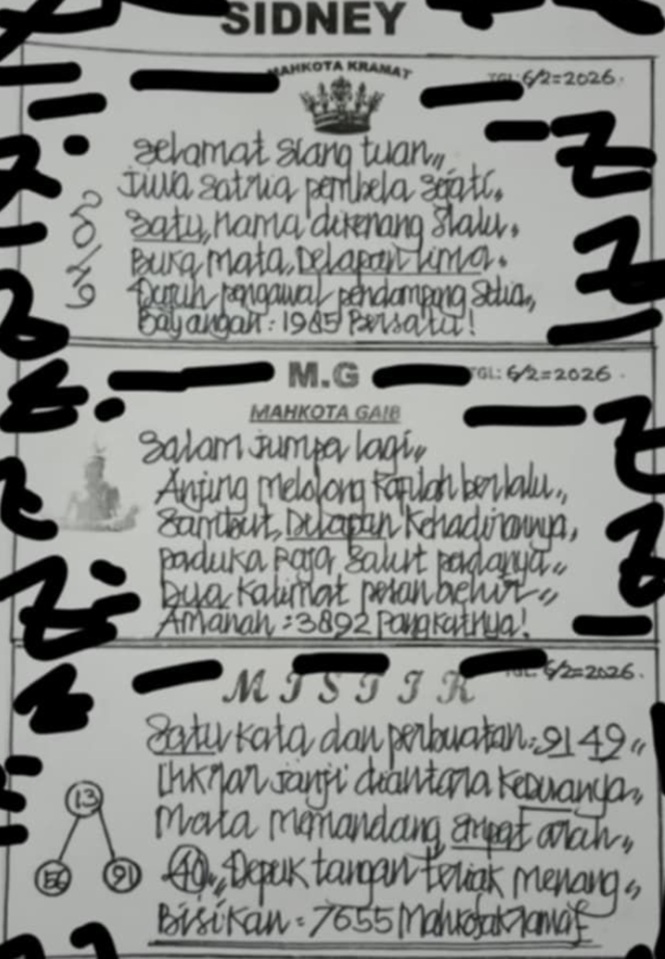 SIDNEY
MAHKOTA KRAMAT
TGL: 6/2=2026.
Selamat siang tuan,,
Jiwa satria pembela sejati.
Satu, nama dikenang slalu.
Buka mata, Delapan lima.
pengawal pendamping setia,,
Bayangan: 1985 Bersatu!
M.G
TGL: 6/2=2026
MAHKOTA GAIB
Salam jumpa lagi,,
Anjing melolong kafilah berlalu,,
Sambut, Delapan kehadirannya,
paduka raja salut padanya,,
Dua kalimat pesan
Amanah :3892 pangkatnya!
TGL: 6/2=2026.
MISTIK
Satu kata dan perbuatan: 9149,,
Ihkrar janji diantara keduanya,,
Mata memandang, empat arah,,
13
91
40,, Depuk tangan teriak menang,,
Bisikan: 7655 Mahkotakramat